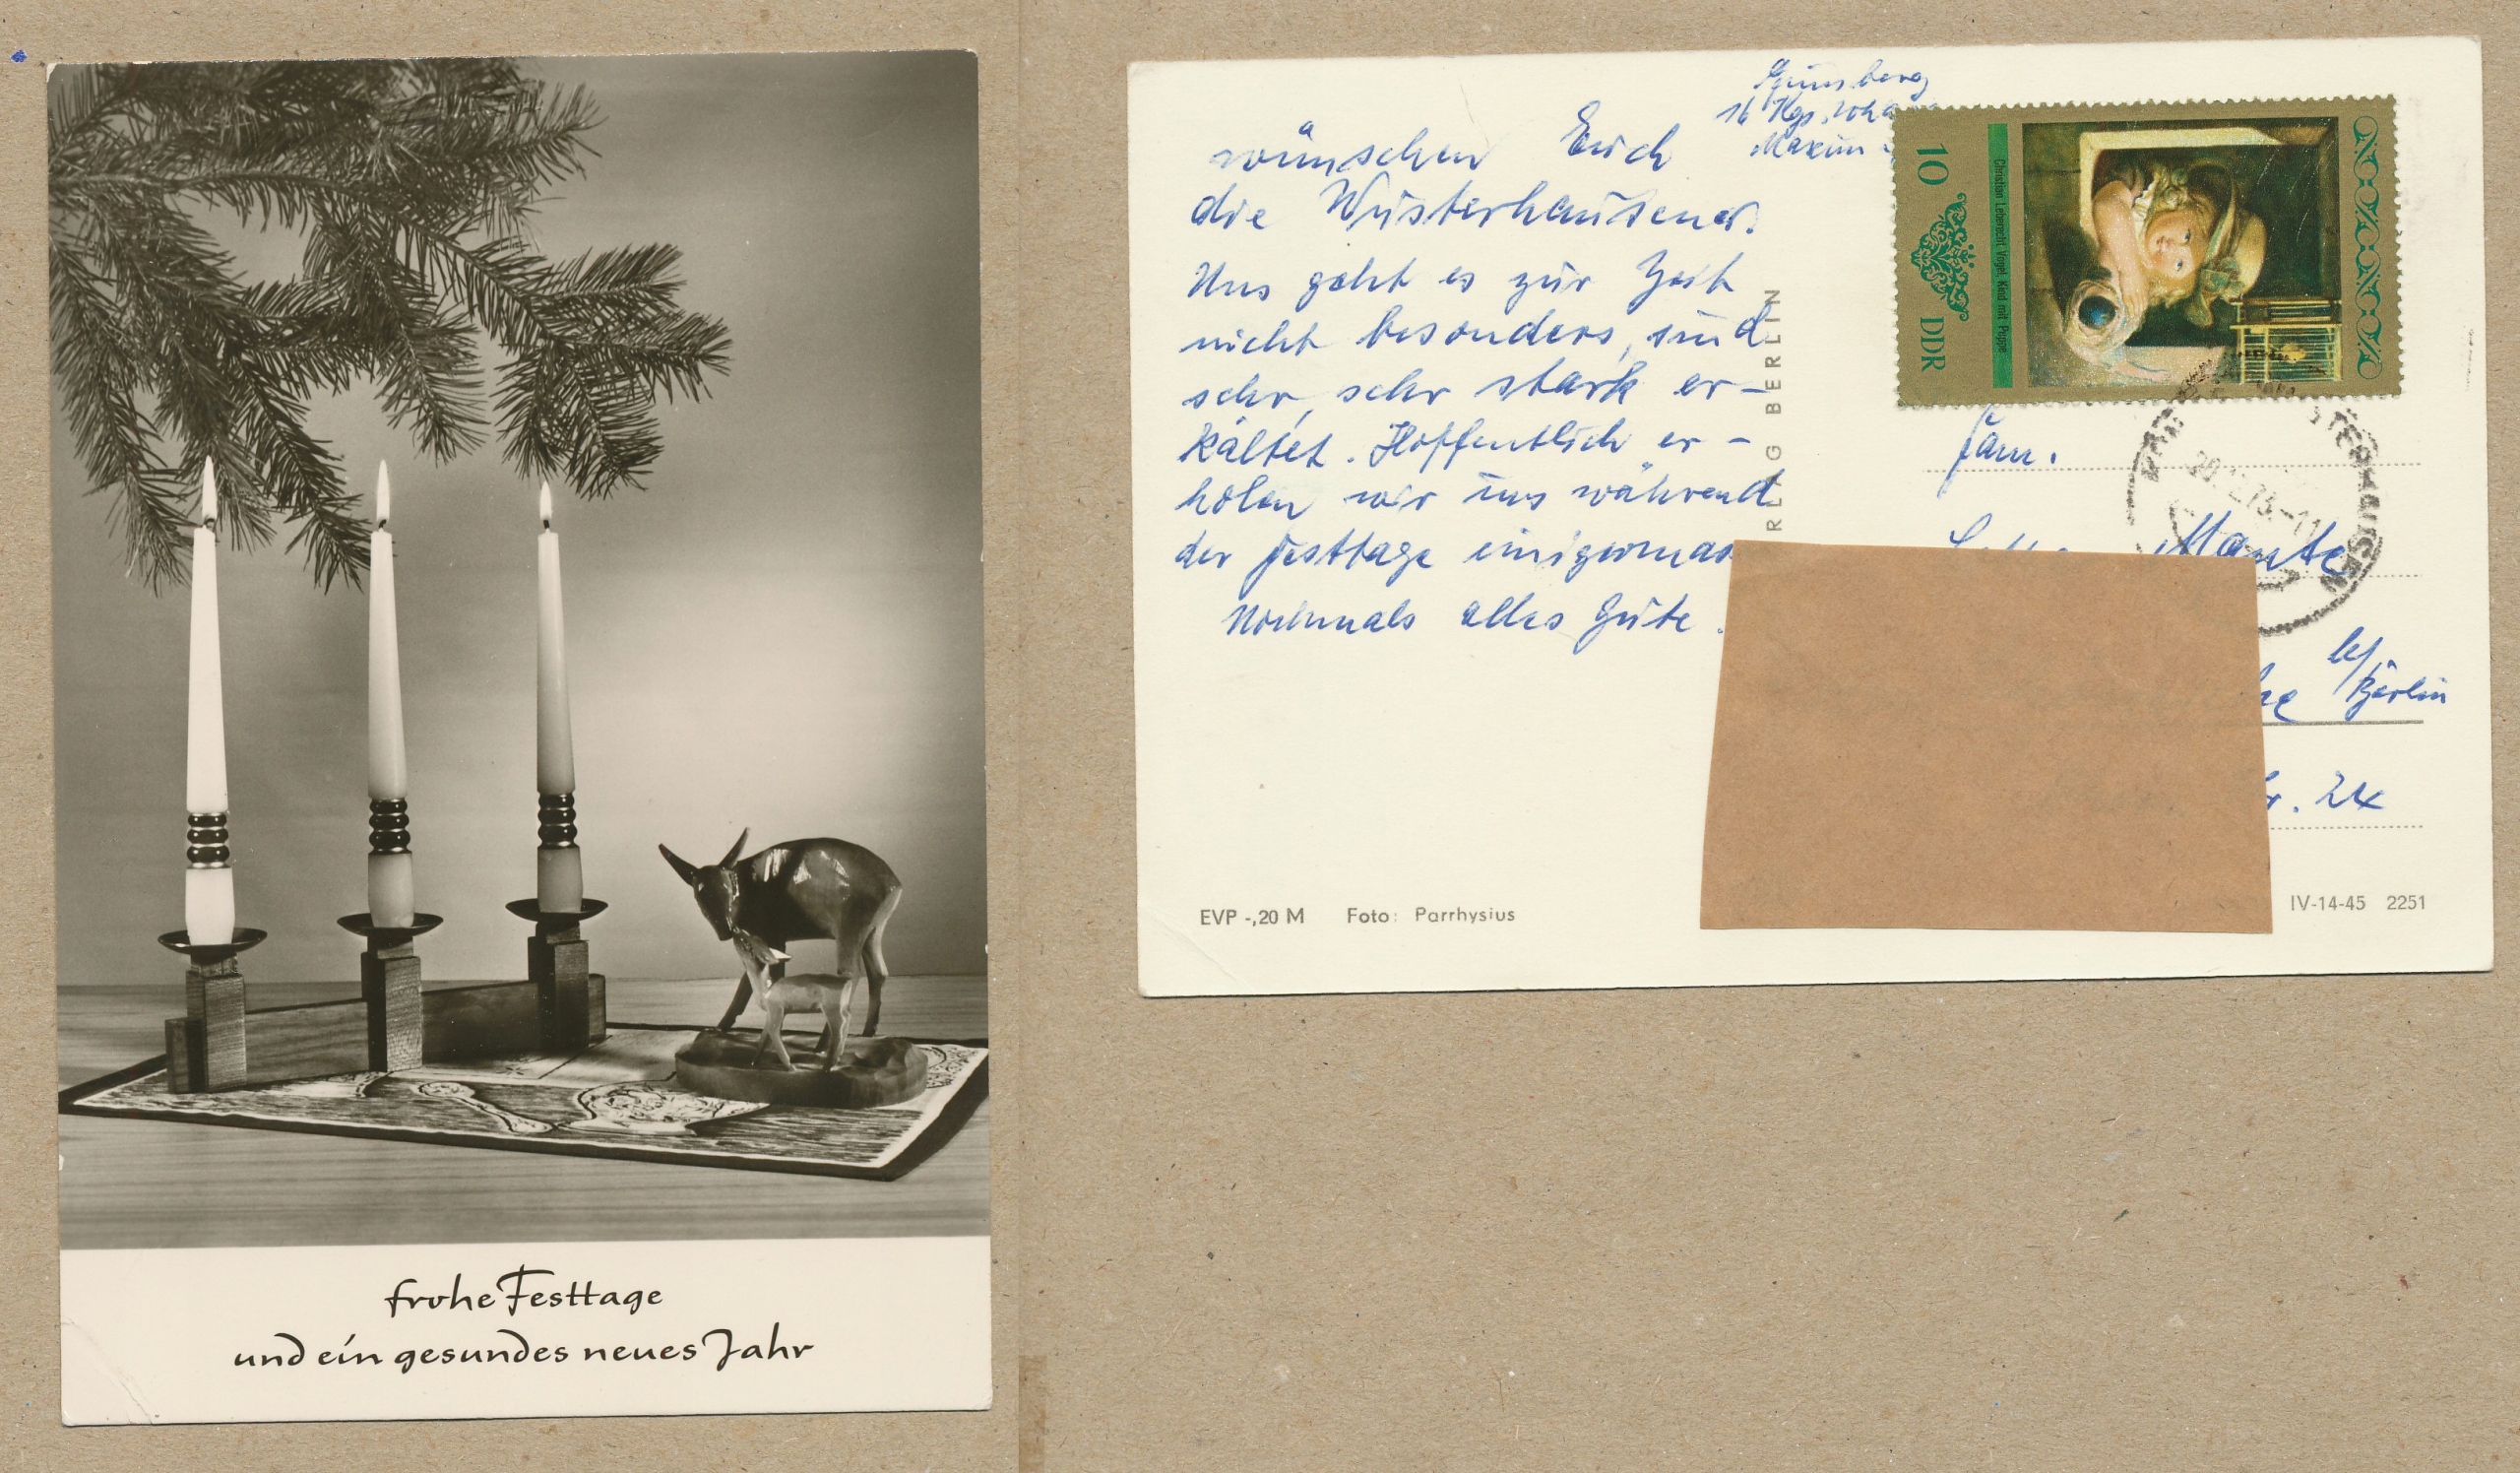 frohe Festtage
und ein gesundes neues Jahr
wünschen Euch
die Wusterhausener.
Uns geht es zur Zeit
nicht besonders, sind
sehr, sehr stark er-
kältet. Hoffentlich er-
holen wir uns während
der Festtage einigermas
Nochmals alles Gute.
Günsberg
16 Kgs. Wha
Maxim
RLAG BERLIN
10 DDR
Christian Leberecht Vogel Kind mit Puppe
Fam.
Mante
b/
Berlin
r. 24
EVP -,20 M Foto: Parrhysius
IV-14-45 2251